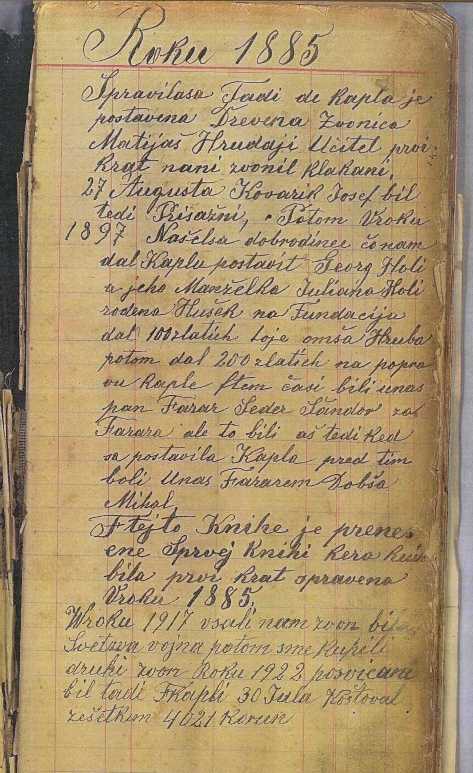 Roku 1885
Spravilasa Tadi de Kapla je
postavena Drevena Zvonica
Matijaš Hrudaji Učitel prvi
krat nani zvonil klakani,
27 Augusta Kovarik Josef bil
tedi Prisažni, Potom Vroku
1897 Našelsa dobrodinec čo nam
dal Kaplu postavit Georg Holi
a jeho Manželka Juliana Holi
rodena Hušek na Fundaciju
dal 100 zlatich toje omša Hruba
potom dal 200 zlatich na popra
vu kaple ftem časi bili unas
pan Farar Šeder Šandor za
Farara ale to bili aš tedi ked
sa postavila Kapla pred tim
boli Unas Fararem Dobša
Mihal
Ftejto Knihe je prenes
ene Sprvej knihi kera
bila prvi krat spravena
Vroku 1885,
Wroku 1917 vsali nam zvon bila
Svetzva vojna potom sme kupili
druhi zvon Roku 1922 posvicani
bil tadi Fkapli 30 Jula Koštoval
zešetkim 4021 Korun